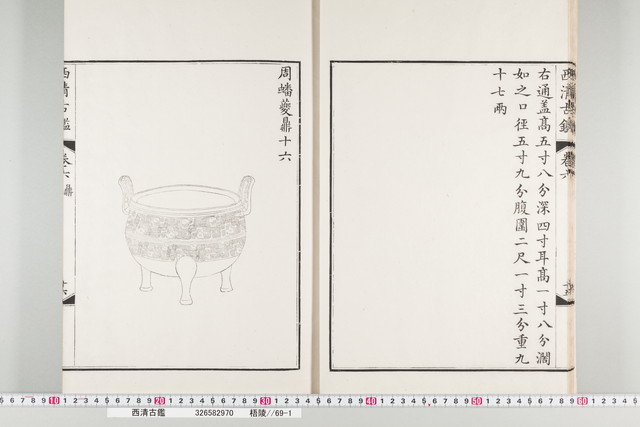 右通盖高五寸八分深四寸耳高一寸八分濶
如之口徑五寸九分腹圍二尺一寸三分重九
十七兩
周蟠夔鼎十六
西清古鑑
卷六 鼎
十六
西清古鑑 326582970 梧陵//69-1